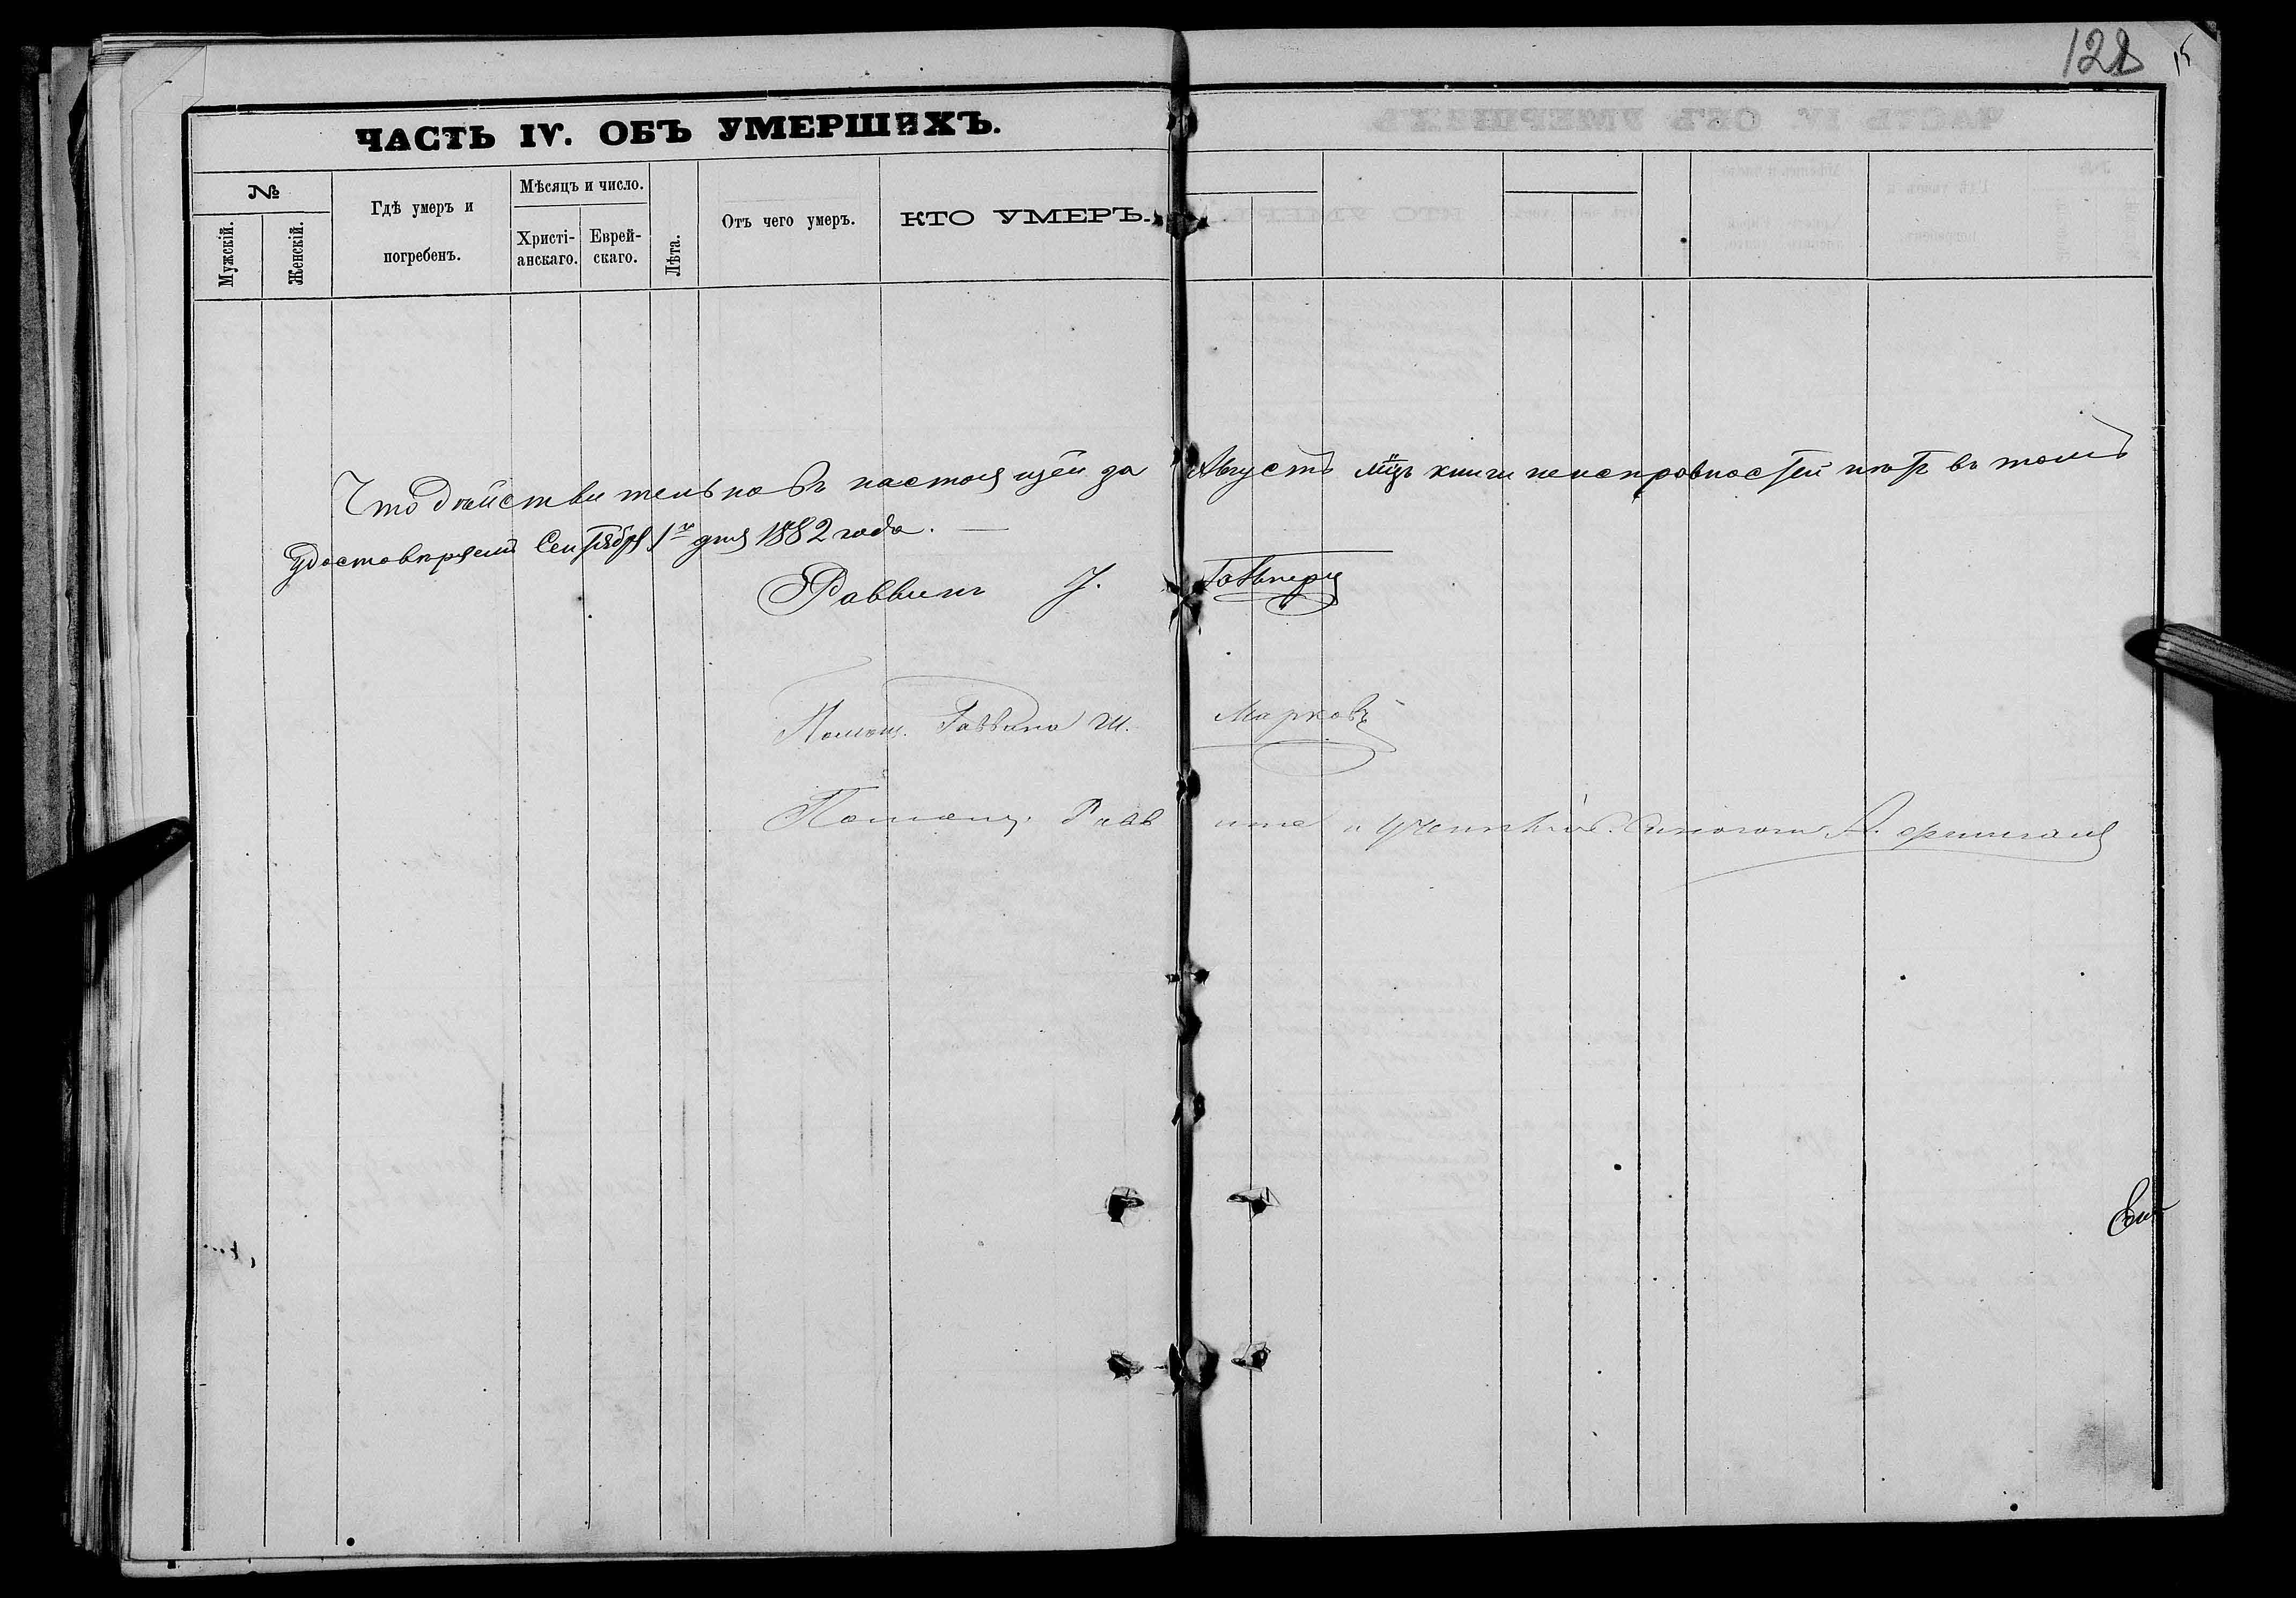 128
15
ЧАСТЬ IV. ОБЪ УМЕРШИХЪ.
№
Мужскій.
Женскій.
Гдѣ умеръ и
погребенъ.
Мѣсяцъ и число.
Христі-
анскаго.
Еврей-
скаго.
Лѣта.
Отъ чего умеръ.
КТО УМЕРЪ.
Что дѣйствительно въ настоящей за Августъ мцъ книги неисправностей нѣтъ въ томъ
Удостовѣряемъ Сентября 1го дня 1882 года. —
Раввинъ
Помощ. Раввина Ш. Марковъ
Помощ. Раввина и